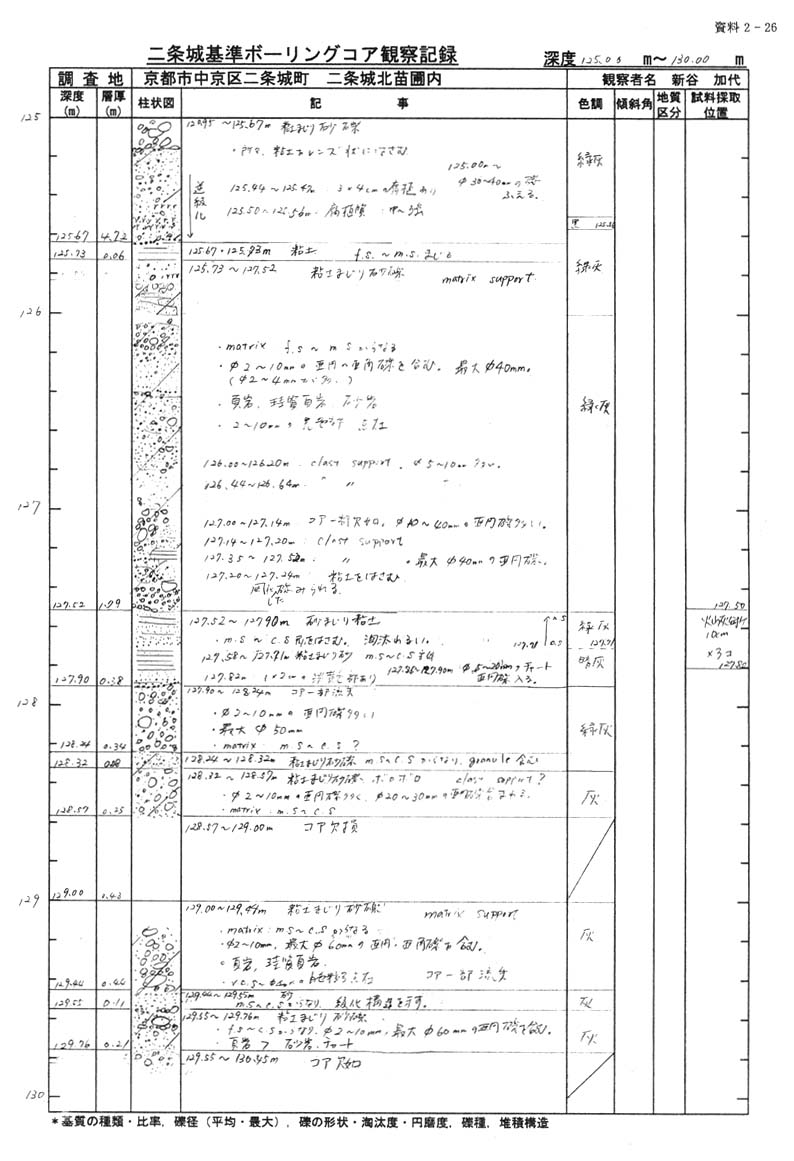 資料 2 - 26
二条城基準ボーリングコア観察記録 深度 125.00 m～ 130.00 m
調査地 京都市中京区二条城町 二条城北苗圃内 観察者名 新谷 加代
深度(m) 層厚(m) 柱状図 記事 色調 傾斜角 地質区分 試料採取位置
125
～125.67m 粘土まじり砂礫
粘土をレンズ状にはさむ
125.00m～
φ30～40mmの礫ふえる。
緑灰
逆級化
125.44～125.47m : 3×4cmの腐植あり
125.50～125.56m. 腐植質 : 中～強
125.67 4.72
125.67～125.73m 粘土 f.s.～m.s.まじる
125.73 0.06
125.73～127.52 粘土まじり砂礫 matrix support
緑灰
126
・matrix f.s～m s からなる
・φ2～10mmの亜円～亜角礫を含む。最大φ40mm。
(φ2～4mmが多い)
・頁岩、珪質頁岩 砂岩
緑灰
・2～10mmの 点在
126.00～126.20m : clast support. φ5～10mm
126.44～126.64m 〃 〃
127
127.00～127.14m コア一部欠如, φ10～40mmの亜円礫多い。
127.14～127.20m : clast support
127.35～127.52m : 〃 ・最大φ40mmの亜円礫。
127.20～127.24m : 粘土をはさむ
127.52 1.79
127.50
127.52～127.90m 砂まじり粘土
緑灰
・m.s～c.s をはさむ。淘汰わるい。
10cm
×3コ
127.58～127.71m 粘土まじり砂 m.s～c.s
暗灰
127.80
127.82m 1×2cmの あり
127.85～127.90m φ5～20mmのチャート亜円礫入る。
127.90 0.38
127.90～128.24m コア一部流失
128
・φ2～10mmの亜円礫多い
・最大φ50mm
緑灰
・matrix m s～c.s ?
128.24 0.34
128.24～128.32m 粘土まじり砂礫 m s～c.s からなり, granule 含む
128.32 0.08
128.32～128.57m 粘土まじり砂礫. ボロボロ clast support?
・φ2～10mmの亜円礫多く, φ20～30mmの亜円礫含まれる.
灰
・matrix : m.s～c.s
128.57 0.25
128.57～129.00m コア欠損
129
129.00 0.43
129.00～129.44m 粘土まじり砂礫 matrix support
・matrix : m s～c.s からなる
灰
・φ2～10mm, 最大φ60mmの亜円・亜角礫を含む。
・頁岩, 珪質頁岩
点在 コア一部流失
129.44 0.44
129.44～129.55m 砂
m.s～c.s からなり, 級化構造を示す。
灰
129.55 0.11
129.55～129.76m 粘土まじり砂礫
・f.s～c.s からなり, φ2～10mm, 最大φ60mmの亜円礫を含む。
・頁岩 > 砂岩, チャート
灰
129.76 0.21
129.55～130.45m コア欠如
130
*基質の種類・比率, 礫径（平均・最大）, 礫の形状・淘汰度・円磨度, 礫種, 堆積構造